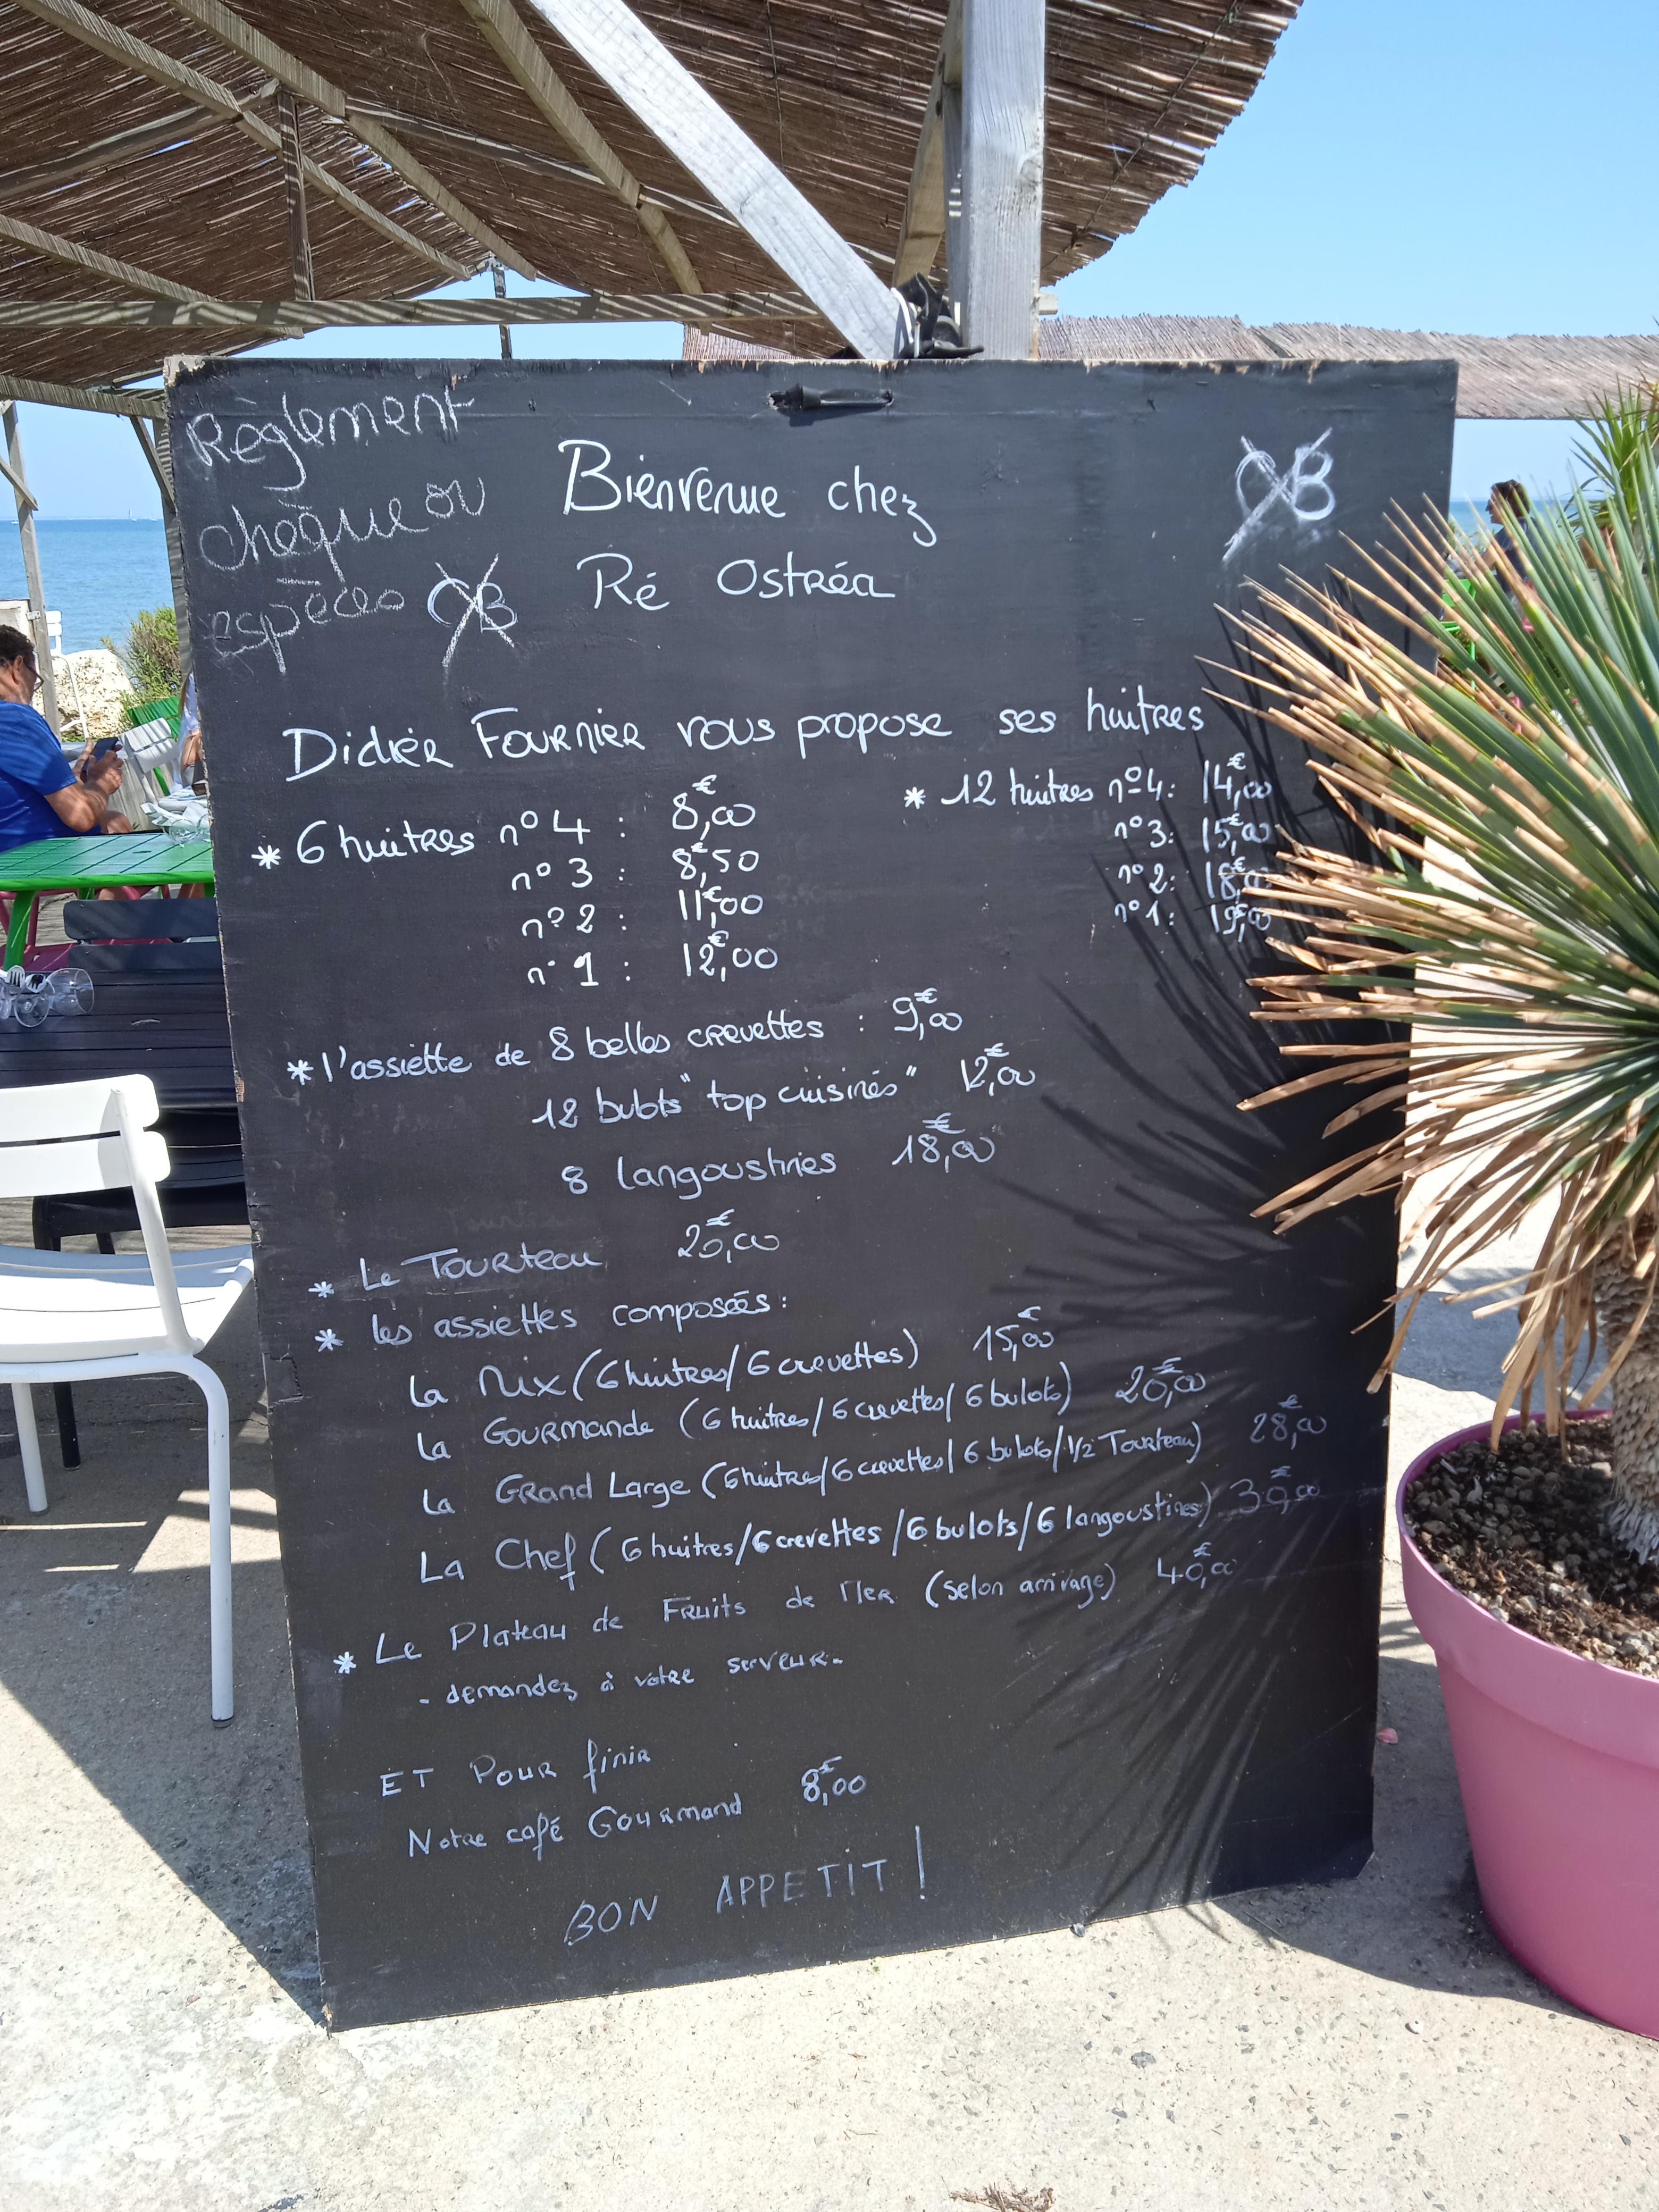 Règlement
chèque ou
espèces CB
Bienvenue chez
Ré Ostréa
CB
Didier Fournier vous propose ses huitres
* 6 huitres n° 4 : 8,€00
n° 3 : 8,€50
n° 2 : 11,€00
n° 1 : 12,€00
* 12 huitres n° 4 : 14,€00
n° 3 : 15,€00
n° 2 : 18,€00
n° 1 : 19,€00
* l'assiette de 8 belles crevettes : 9,€00
12 bulots "top cuisinés" 12,€00
8 langoustines 18,€00
* Le Tourteau 20,€00
* les assiettes composées :
la Mix (6 huitres/6 crevettes) 15,€00
la Gourmande (6 huitres/6 crevettes/6 bulots) 20,€00
la Grand Large (6 huitres/6 crevettes/6 bulots/1/2 Tourteau) 28,€00
La Chef (6 huitres/6 crevettes/6 bulots/6 langoustines)
* Le Plateau de Fruits de Mer (selon arrivage) 40,€00
- demandez à votre serveur.
ET Pour finir
Notre café Gourmand 8,€00
BON APPETIT !